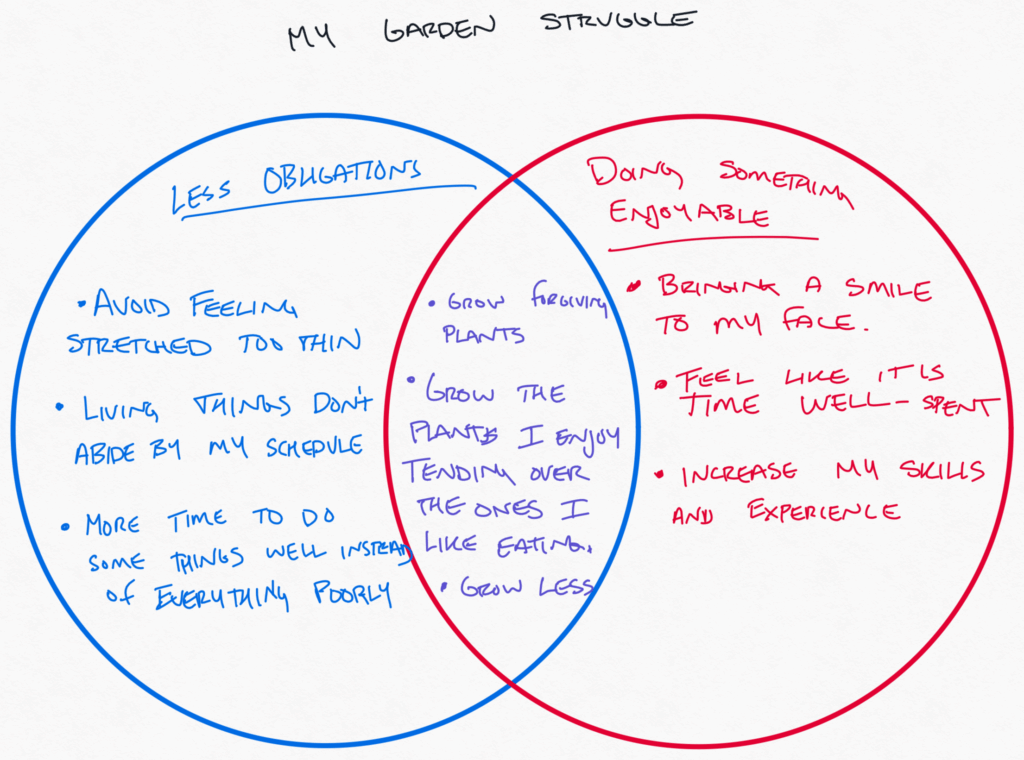 MY GARDEN STRUGGLE
LESS OBLIGATIONS
• AVOID FEELING
STRETCHED TOO THIN
• LIVING THINGS DON'T
ABIDE BY MY SCHEDULE
• MORE TIME TO DO
SOME THINGS WELL INSTEAD
OF EVERYTHING POORLY
• GROW FORGIVING
PLANTS
• GROW THE
PLANTS I ENJOY
TENDING OVER
THE ONES I
LIKE EATING.
• GROW LESS
DOING SOMETHING
ENJOYABLE
• BRINGING A SMILE
TO MY FACE.
• FEEL LIKE IT IS
TIME WELL-SPENT
• INCREASE MY SKILLS
AND EXPERIENCE